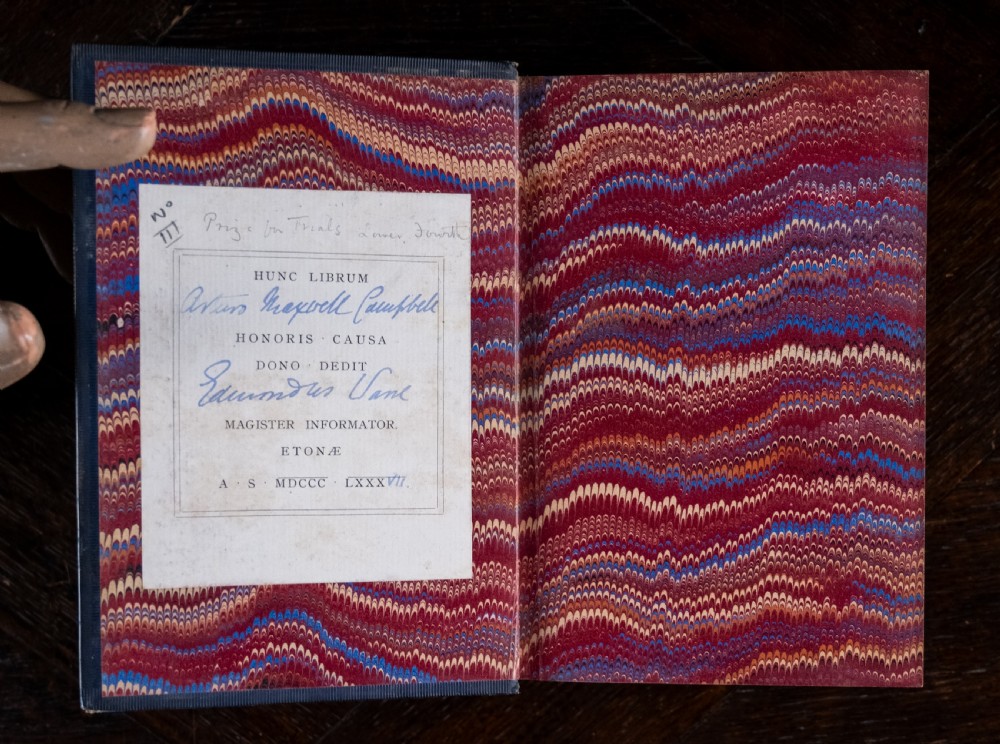 No
III
Prize for Trials Lower Fourth
HUNC LIBRUM
Maxwell Campbell
HONORIS · CAUSA
DONO · DEDIT
Edmondus
MAGISTER INFORMATOR.
ETONÆ
A · S · MDCCC · LXXXVII.